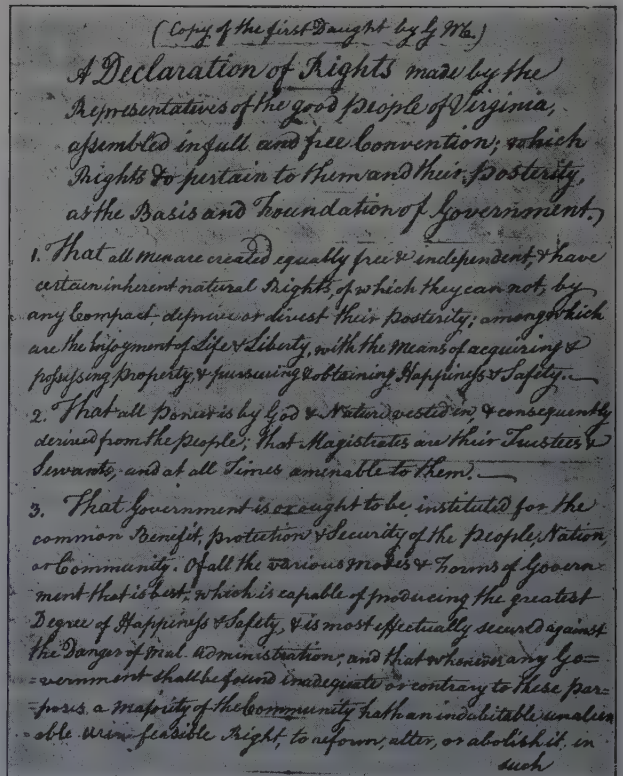 (Copy of the first Daught by G M.)
A Declaration of Rights made by the
Representatives of the good people of Virginia,
assembled in full and free Convention; which
Rights do pertain to them and their posterity,
as the Basis and Foundation of Government.
1. That all men are created equally free & independent, & have
certain inherent natural Rights, of which they can not, by
any Compact, deprive or divest their Posterity; among which
are the Enjoyment of Life & Liberty, with the Means of acquiring &
possessing property, & pursueing & obtaining Happiness & Safety.
2. That all power is by God & Nature vested in, & consequently
derived from the people; that Magistrates are their Trustees &
Servants, and at all Times amenable to them.
3. That Government is or ought to be instituted for the
common Benefit, protection & Security of the People, Nation,
or Community. Of all the various modes & Forms of Govern-
ment that is best, which is capable of producing the greatest
Degree of Happiness & Safety, & is most effectually secured against
the Danger of mal-administration; and that whenever any Go=
=vernment shall be found inadequate or contrary to these pur=
=poses, a majority of the Community hath an indubitable unalien
=able & Right, to reform, alter, or abolish it, in
such